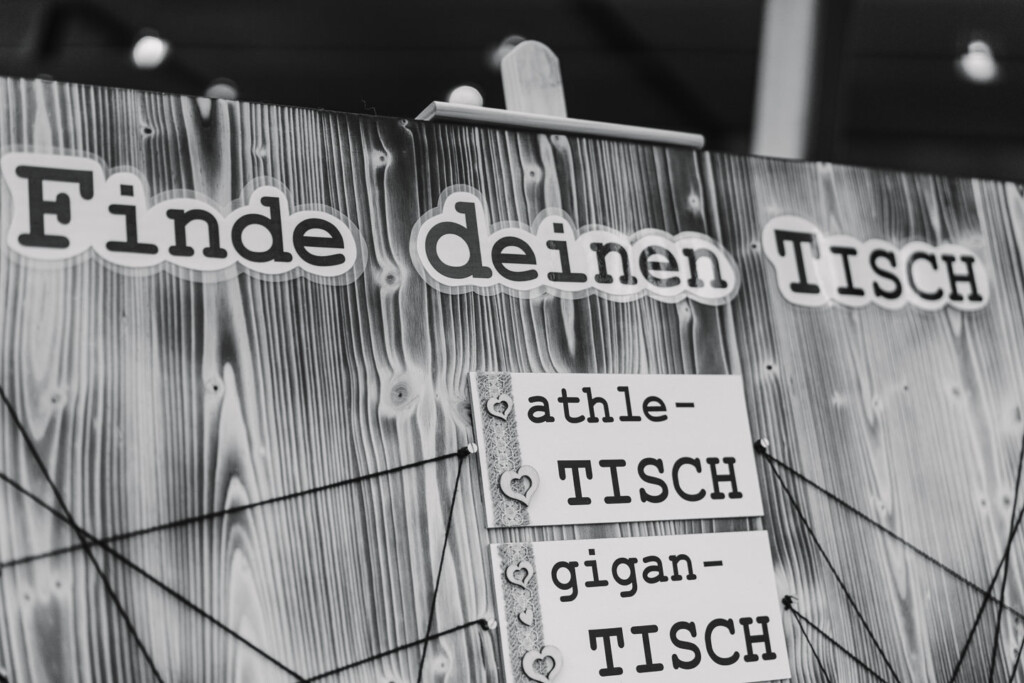 Finde deinen TISCH
athle-
TISCH
gigan-
TISCH